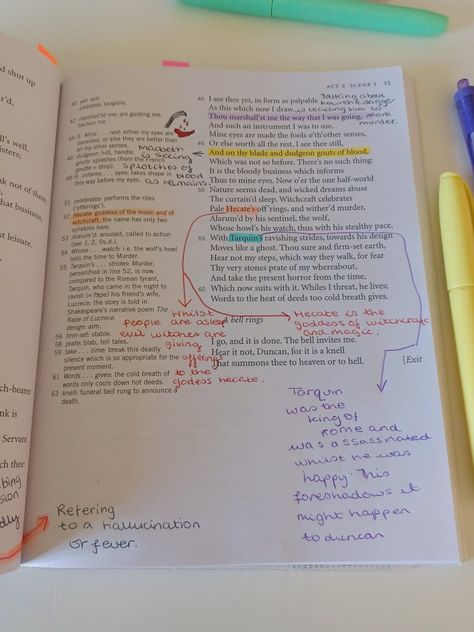 d shut up
r'd.
's well.
isters;
nk not of them
hat business,
t leisure.
ch-bearer
nk is
Servant
ch thee:
ACT 2 SCENE 1 25
40 yet: still.
palpable: tangible.
42 marshal'st me: are guiding me,
beckon me.
44-5 Mine . . . rest: either my eyes are
deceived, or else they are better than
the other senses.
46 dudgeon: hilt, handle.
gouts: splashes
48-9 informs . . . eyes: takes shape in
this way before my eyes.
51 celebrates: performs the rites
('offerings').
52 Hecate: goddess of the moon and of
witchcraft; the name has only two
syllables here.
53 Alarum'd: aroused, called to action
(see 1, 2, 0s.d.).
54 Whose . . . watch: i.e. the wolf's howl
tells the time to Murder.
55 Tarquin's . . . strides: Murder,
personified in line 52, is now
compared to the Roman tyrant,
Tarquin, who came in the night to
ravish (= rape) his friend's wife,
Lucrece; the story is told in
Shakespeare's narrative poem The
Rape of Lucrece.
design: aim.
56 firm-set: stable.
58 prate: blab, tell tales.
59 take . . . time: break this deadly
silence which is so appropriate for the
present moment.
61 Words . . . gives: the cold breath of
words only cools down hot deeds.
63 knell: funeral bell rung to announce a
death.
40 I see thee yet, in form as palpable
As this which now I draw.
Thou marshall'st me the way that I was going,
And such an instrument I was to use.
Mine eyes are made the fools o'th'other senses,
45 Or else worth all the rest. I see thee still,
And on thy blade and dudgeon gouts of blood,
Which was not so before. There's no such thing:
It is the bloody business which informs
Thus to mine eyes. Now o'er the one half-world
50 Nature seems dead, and wicked dreams abuse
The curtain'd sleep. Witchcraft celebrates
Pale Hecate's off'rings, and wither'd murder,
Alarum'd by his sentinel, the wolf,
Whose howl's his watch, thus with his stealthy pace,
55 With Tarquin's ravishing strides, towards his design
Moves like a ghost. Thou sure and firm-set earth,
Hear not my steps, which way they walk, for fear
Thy very stones prate of my whereabout,
And take the present horror from the time,
60 Which now suits with it. Whiles I threat, he lives;
Words to the heat of deeds too cold breath gives.
A bell rings
I go, and it is done. The bell invites me.
Hear it not, Duncan, for it is a knell
That summons thee to heaven or to hell.
[Exit
Talking about
how the dagger
is leading him to
more
murder.
Macbeth
is seeing
splatters of
blood
as remains.
Whilst
people are asleep
evil witches are
giving
offerings
to the
godess hecate.
Hecate is the
goddess of witchcraft
and magic.
Tarquin
was the
king of
rome and
was assassinated
whilst he was
happy. This
foreshadows it
might happen
to duncan
Refering
to a hallucination
or fever.